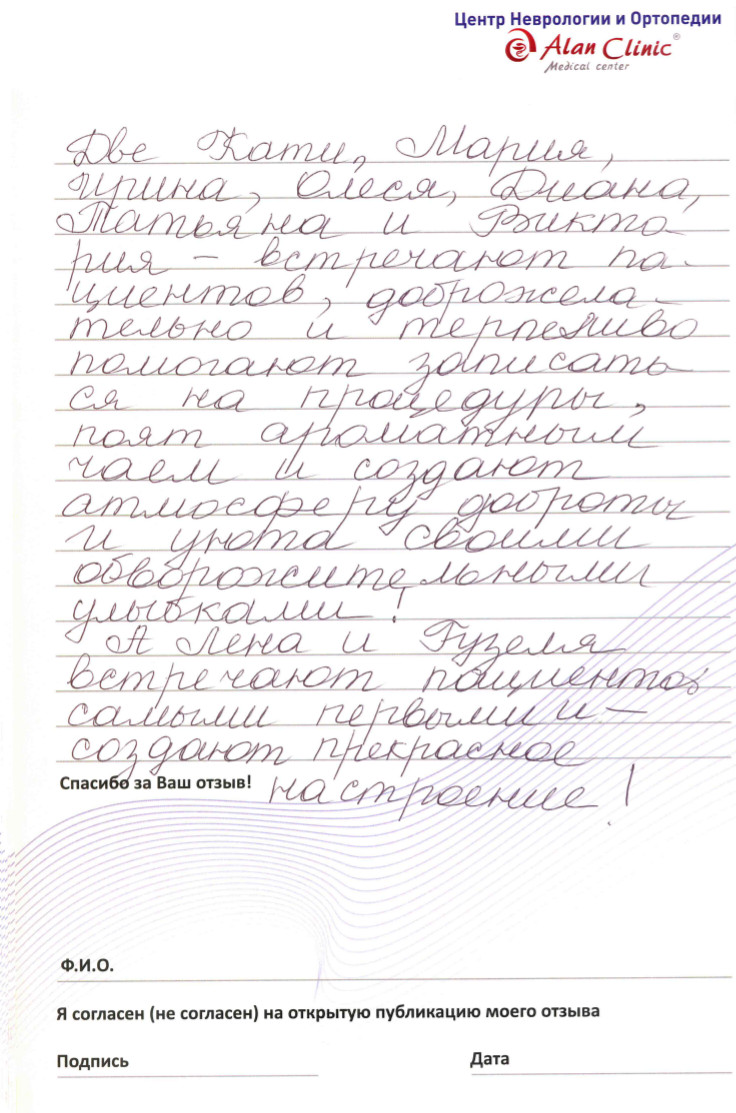 Центр Неврологии и Ортопедии
Alan Clinic®
Medical center
Две Кати, Мария,
Ирина, Олеся, Диана,
Татьяна и Викто
рия – встречают па-
циентов, доброжела-
тельно и терпеливо
помогают записать
ся на процедуры,
поят ароматным
чаем и создают
атмосферу доброты
и уюта своими
обворожительными
улыбками!
А Лена и Гузеля
встречают пациентов
самыми первыми и –
создают прекрасное
настроение!
Спасибо за Ваш отзыв!
Ф.И.О.
Я согласен (не согласен) на открытую публикацию моего отзыва
Подпись Дата